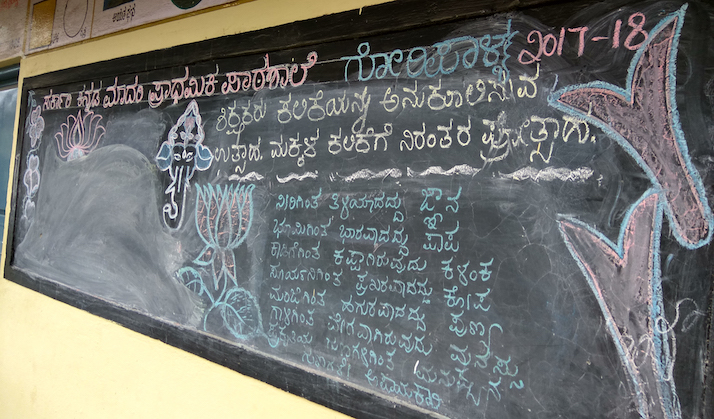 ಸರ್ಕಾರಿ ಕನ್ನಡ ಮಾದರಿ ಪ್ರಾಥಮಿಕ ಪಾಠಶಾಲೆ ಗೋರಿಪಾಳ್ಯ 2017-18
ಶಿಕ್ಷಕರು ಕಲಿಕೆಯನ್ನು ಅನುಕೂಲಿಸುವ
ಉತ್ಸಾಹ. ಮಕ್ಕಳ ಕಲಿಕೆಗೆ ನಿರಂತರ ಪ್ರೋತ್ಸಾಹ.
ನೀರಿಗಿಂತ ತಿಳಿಯಾದದ್ದು ಜ್ಞಾನ
ಭೂಮಿಗಿಂತ ಭಾರವಾದದ್ದು ಪಾಪ
ಕಾಡಿಗೆಗಿಂತ ಕಪ್ಪಾಗಿರುವುದು ಕಳಂಕ
ಸೂರ್ಯನಿಗಿಂತ ಪ್ರಖರವಾದದ್ದು ಕೋಪ
ಮಂಜಿಗಿಂತ ಹಗುರವಾದದ್ದು ಪುಣ್ಯ
ಗಾಳಿಗಿಂತ ವೇಗವಾಗಿರುವುದು ಮನಸ್ಸು